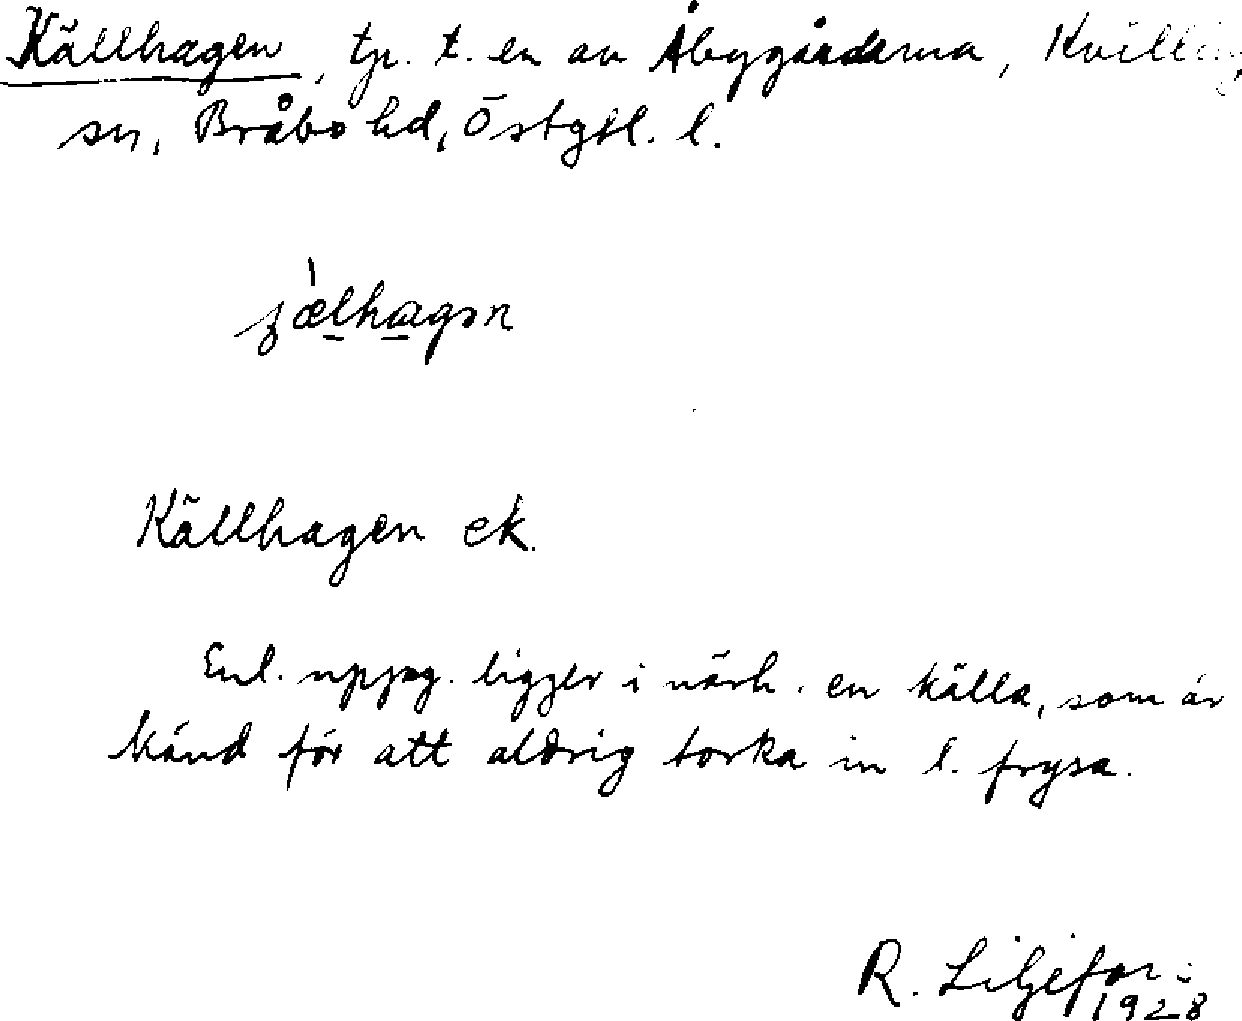 Källhagen, tp. t. en av Åbygårdarna, Kvilling
sn, Bråbo hd, Östgtl. l.
Källhagen ek.
Enl. uppg. ligger i närh. en källa, som är
känd för att aldrig torka in l. frysa.
R. Liljefor
1928